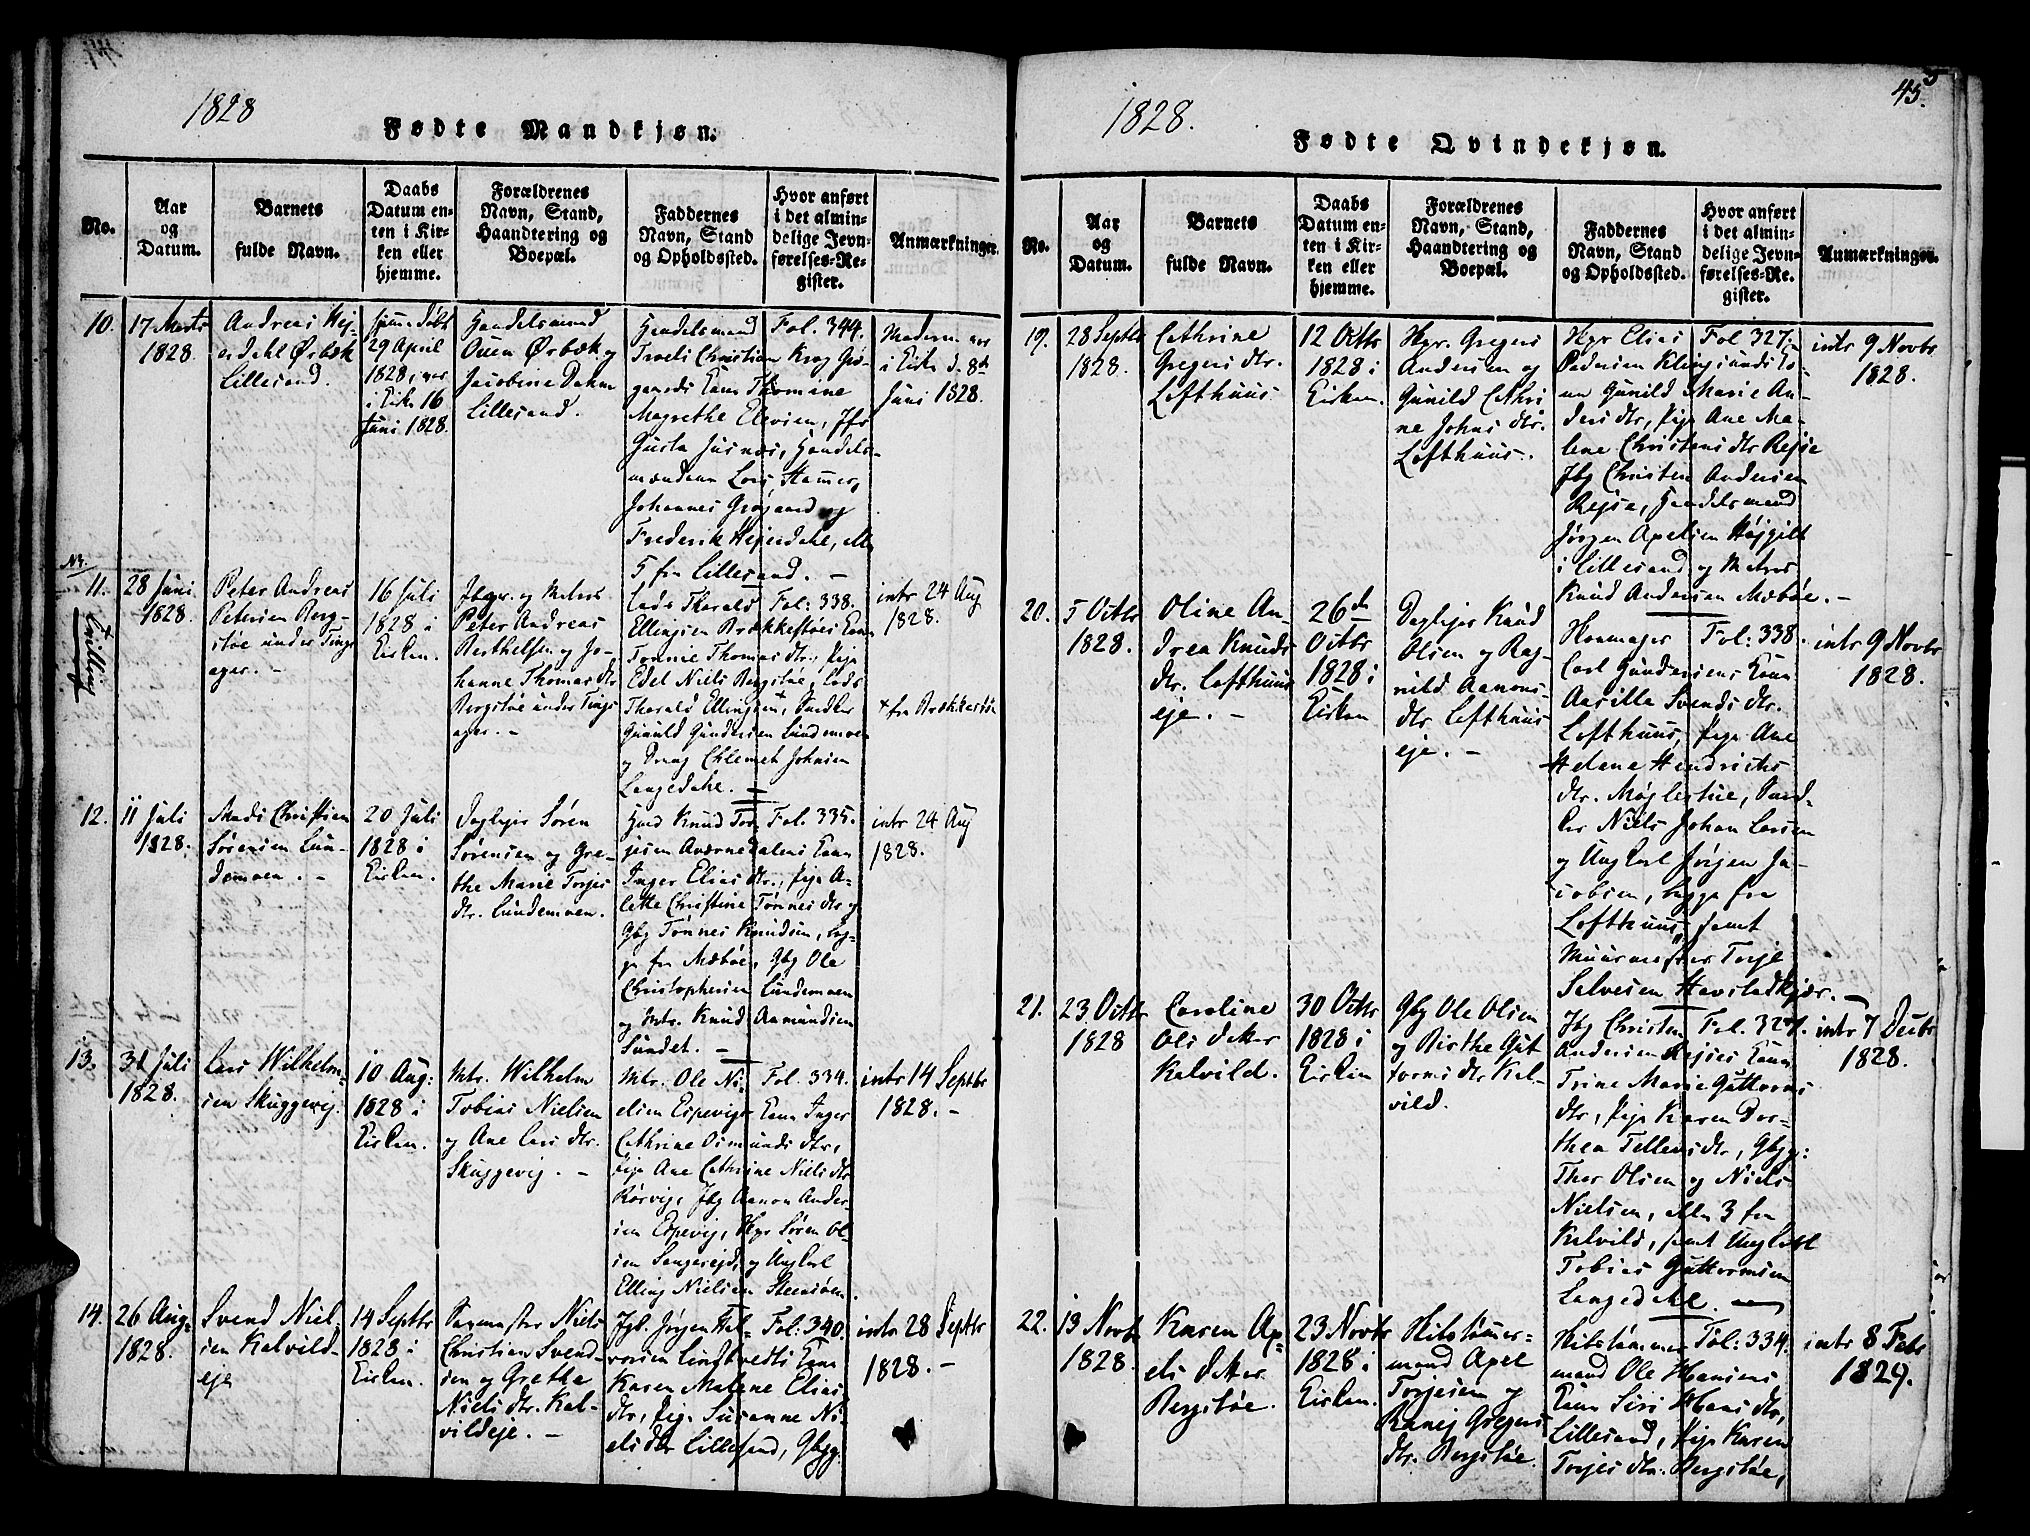 1828
Fødte Mandkjøn.
No.
Aar
og
Datum.
Barnets
fulde Navn.
Daabs
Datum en-
ten i Kir-
ken eller
hjemme.
Forældrenes
Navn, Stand,
Haandtering og
Boepæl.
Faddernes
Navn, Stand
og Opholdssted.
Hvor anført
i det almin-
delige Jevn-
førelses-Re-
gister.
Anmærkninger.
10.
17 Marts
1828.
Andreas Hej-
erdahl Ørbæk
Lillesand.
hjem. døbt
29 April
1828, var
i Kirk. 16
Juni 1828.
Handelsmand
Ouen Ørbæk og
Jacobine Dahm
Lillesand.
Handelsmand
Troels Christian Krog Grø-
gaards Kone Thomine
Magrethe Elevine, Jfr
Gusta Jusnæs, Handels-
mændene Lars Hammer,
Johannes Grøgaard og
Frederik Hejerdahl, alle
5 fra Lillesand. -
Fol. 344.
Moderen var
i Kirke d. 8de
Juni 1828.
No.
11.
Tvilling
28 Juni
1828.
Peter Andreas
Petersen Berg-
støe under Tings-
ager. -
16 Juli
1828 i
Kirken.
Jbgr. og Matros
Peter Andreas
Berthelsen og Jo-
hanne Thomas dtr
Bergstøe under Tings-
ager. -
Lods Tharald
Ellingsen Brækkestøes Kone
Tønnie Thomas dtr, Pige
Edel Niels Bergstøe, Lods
Tharald Ellingsen +, Snedker
Gunuld Gundersen Lundemoen
og Dreng Chlemet Johnsen
Langedahl. -
Fol: 338.
intr 24 Aug
1828.
+ fra Brækkestøe
12.
11 Juli
1828.
Mads Christian
Sørensen Lun-
demoen. -
20 Juli
1828 i
Kirken.
Daglejer Søren
Sørensen og Gre-
the Marie Torjes
dtr. Lundemoen.
Huusm Knud Tor-
jesen Aværnedalens Kone
Inger Elias dtr., Pige A-
lette Christine Tønnes dtr og
Gbg Tønnes Knudsen, beg-
ge fra Mæbøe, Gbg Ole
Christophersen Lundemoen
og Mtr. Knud Aamundsen
Sundet. -
Fol. 335.
intr 24 Aug
1828.
13.
31 Juli
1828.
Lars Wilhelm-
sen Skuggevig.
10 Aug:
1828 i
Kirken.
Mtr. Wilhelm
Tobias Nielsen
og Ane Lars dtr.
Skuggevig. -
Mtr. Ole Ni-
elsen Espevigs Kone Inger
Cathrine Osmunds dtr,
Pige Ane Cathrine Niels dtr
Rørvig, Jbg Aanon Ander-
sen Espevig, Hgr Søren Ol-
sen Sangereid, og Ungkarl
Elling Nielsen Steensøen.
Fol. 334.
intr 14 Septbr
1828. -
14.
26 Aug:
1828.
Svend Niel-
sen Kalvild-
eje
14 Septbr
1828 i
Kirken.
Saugmester Niels
Christian Svend-
sen og Grethe
Niels dtr. Kal-
vildeje. -
Jgb. Jørgen Hal-
vorsen Lindtvedts Kone
Karen Malene Elias
dtr, Pige Susanne Ni-
els dtr Lillesand, Gbgg
Fol: 340.
intr 28 Septbr
1828. -
1828.
45.
Fødte Qvindekjøn.
No.
Aar
og
Datum.
Barnets
fulde Navn.
Daabs
Datum en-
ten i Kir-
ken eller
hjemme.
Forældrenes
Navn, Stand,
Haandtering og
Boepæl.
Faddernes
Navn, Stand
og Opholdssted.
Hvor anført
i det almin-
delige Jevn-
førelses-Re-
gister.
Anmærkninger.
19.
28 Septbr
1828.
Cathrine
Gregers dtr.
Lofthuus
12 Octbr
1828 i
Kirken.
Hgr. Gregers
Andersen og
Gunild Cathri-
ne Johns dtr.
Lofthuus.
Hgr Elias
Pedersen Klingsunds Ko-
ne Gunild Marie An-
ders dtr, Pige Ane Ma-
lene Christens dtr Rejse
Jbg Christen Andersen
Rejse, Handelsmand
Jørgen Apelsen Højgilt
i Lillesand og Matros
Knud Andersen Mæbøe. -
Fol 327.
intr 9 Novbr
1828.
20.
5 Octbr
1828.
Oline An-
drea Knuds
dtr. Lofthuus-
eje. -
26de
Octbr
1828 i
Kirken
Daglejer Knud
Olsen og Rag-
nild Aanons-
dtr Lofthuus
eje. -
Skomager
Carl Gundersens Kone
Aasille Svends dtr.
Lofthuus, Pige Ane
Helene Hendrichs
dtr. Møglestue, Sned-
ker Niels Johan Larsen
og Ungkarl Jørgen Ja-
cobsen, begge fra
Lofthuus, samt
Muurmester Torje
Salvesen Havstadkjær. -
Fol: 338.
intr 9 Novbr
1828.
21.
23 Octbr
1828
Caroline
Ols dtter
Kalvild.
30 Octbr
1828 i
Kirken
Gbg Ole Olsen
og Birthe Gut-
torms dtr Kal-
vild.
Jbg Christen
Andersen Rejses Kone
Trine Marie Guttorms
dtr, Pige Karen Dor-
thea Tellevs dtr, Gbgg:
Thor Olsen og Niels
Nielsen, alle 3 fra
Kalvild, samt Ungkarl
Tobias Guttormsen
Langedahl. -
Fol. 327.
intr 7 Decbr
1828.
22.
13 Novb
1828.
Karen Ap-
els dtter
Bergstøe.
23 Novbr
1828 i
Kirken.
Hustømmer-
mand Apel
Torjesen og
Ranej Gregers
dtr. Bergstøe.
Hustømmer-
mand Ole Hansens
Kone Siri Hans dtr,
Lillesand, Pige Karen
Torjes dtr. Bergstøe,
Fol: 334.
intr 8 Febr
1829.